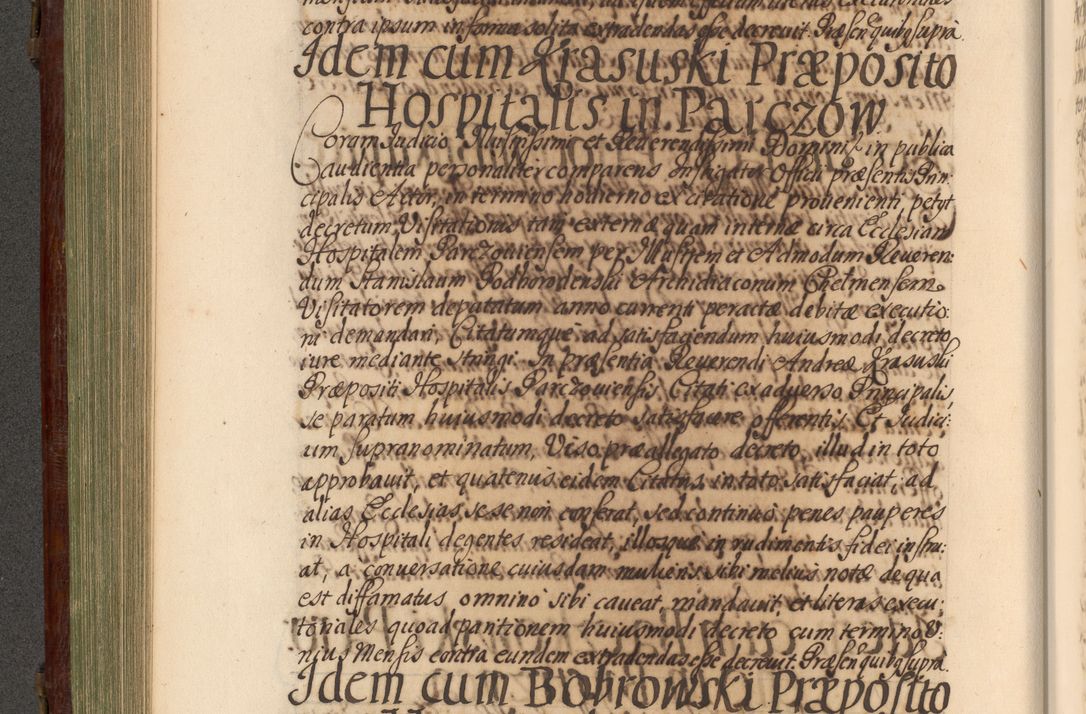 contra ipsum in forma solita extradendas esse decrevit. Præsen quibq supra.
Idem cum Krasuski Præposito
Hospitalis in Parczow
Coram Judicio Illustrissimi et Reverendissimi Domini in publica
audientia personaliter comparens Instigator Officii præsentis Prin:
cipalis Actor, in termino hodierno ex citatione provenienti petyt
decretum Visitationis tam externæ quam internæ circa Ecclesiam
Hospitalem Parczoviensem per Illustrem et Admodum Reveren:
dum Stanislaum Podhorodenski Archidiaconum Chelmensem
Visitatorem deputatum anno currenti peractæ debitæ executio:
ni demandari, Citatumque ad satisfaciendum huiusmodi decreto
iure mediante stringi. In præsentia Reverendi Andreæ Krasuski
Præpositi Hospitalis Parczoviensis Citati ex adverso Principalis,
se paratum huiusmodi decreto satisfacere offerentis. Et Judici:
um supranominatum, Viso præallegato decreto, illud in toto
approbavit, et quatenus eidem Citatus in toto satisfaciat, ad
alias Ecclesias se se non conferat, sed continuo penes pauperes
in Hospitali degentes resideat, illosque in rudimentis fidei instru:
at, a conversatione cuiusdam mulieris sibi melius notæ de qua
est diffamatus omnino sibi caveat, mandavit, et literas execu:
toriales quoad pantionem huiusmodi decreto cum termino U:
nius Mensis contra eundem extradendas esse decrevit. Præsen quibq supra.
Idem cum Bobrowski Præposito